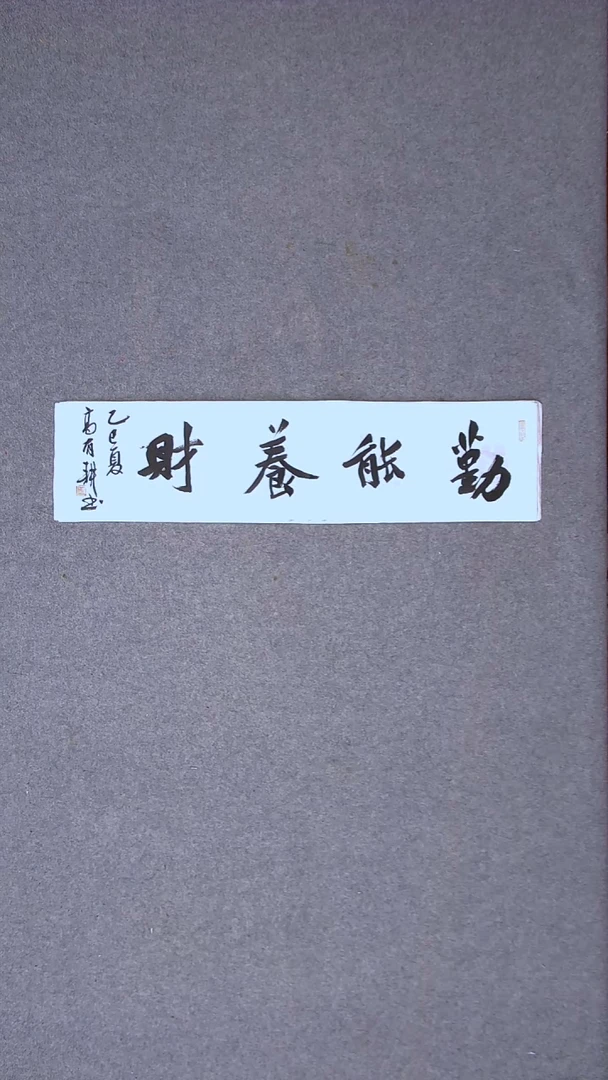 勤能養財
乙巳夏
高有耕书